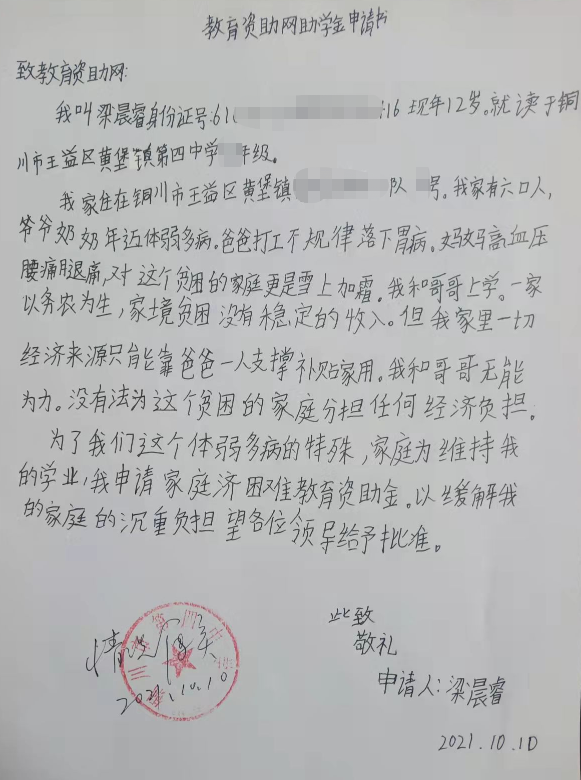 教育资助网助学金申请书
致教育资助网:
我叫梁晨睿身份证号:61 16 现年12岁。就读于铜
川市王益区黄堡镇第四中学 年级。
我家住在铜川市王益区黄堡镇 队 号。我家有六口人,
爷爷奶奶年迈体弱多病。爸爸打工不规律落下胃病。妈妈高血压
腰痛腿痛,对这个贫困的家庭更是雪上加霜。我和哥哥上学。一家
以务农为生,家境贫困没有稳定的收入。但我家里一切
经济来源只能靠爸爸一人支撑补贴家用。我和哥哥无能
为力。没有法为这个贫困的家庭分担任何经济负担。
为了我们这个体弱多病的特殊,家庭为维持我
的学业,我申请家庭济困难教育资助金。以缓解我
的家庭的沉重负担望各位领导给予批准。
情况属实
2021.10.10
此致
敬礼
申请人:梁晨睿
2021.10.10